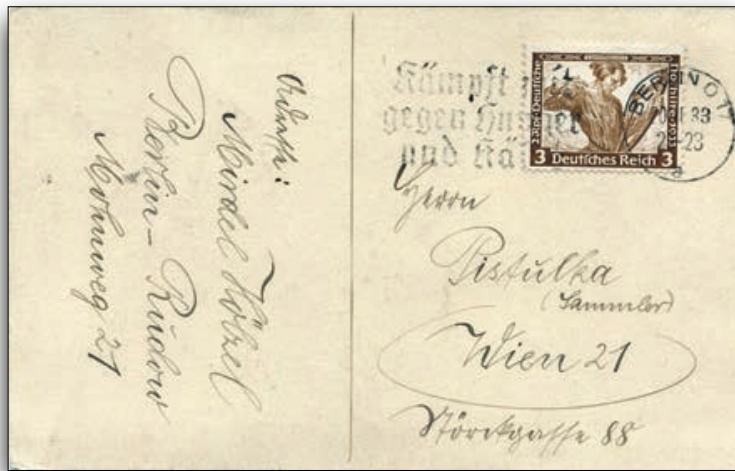 Adresse:
Mirdel Hölzel
Berlin-Rudow
Mohnweg 21
Kämpft mit
gegen Hunger
und Kä
BERLIN O17
23
3 Deutsches Reich 3
Herrn
Pistulka
(Sammler)
Wien 21
Störckgasse 88